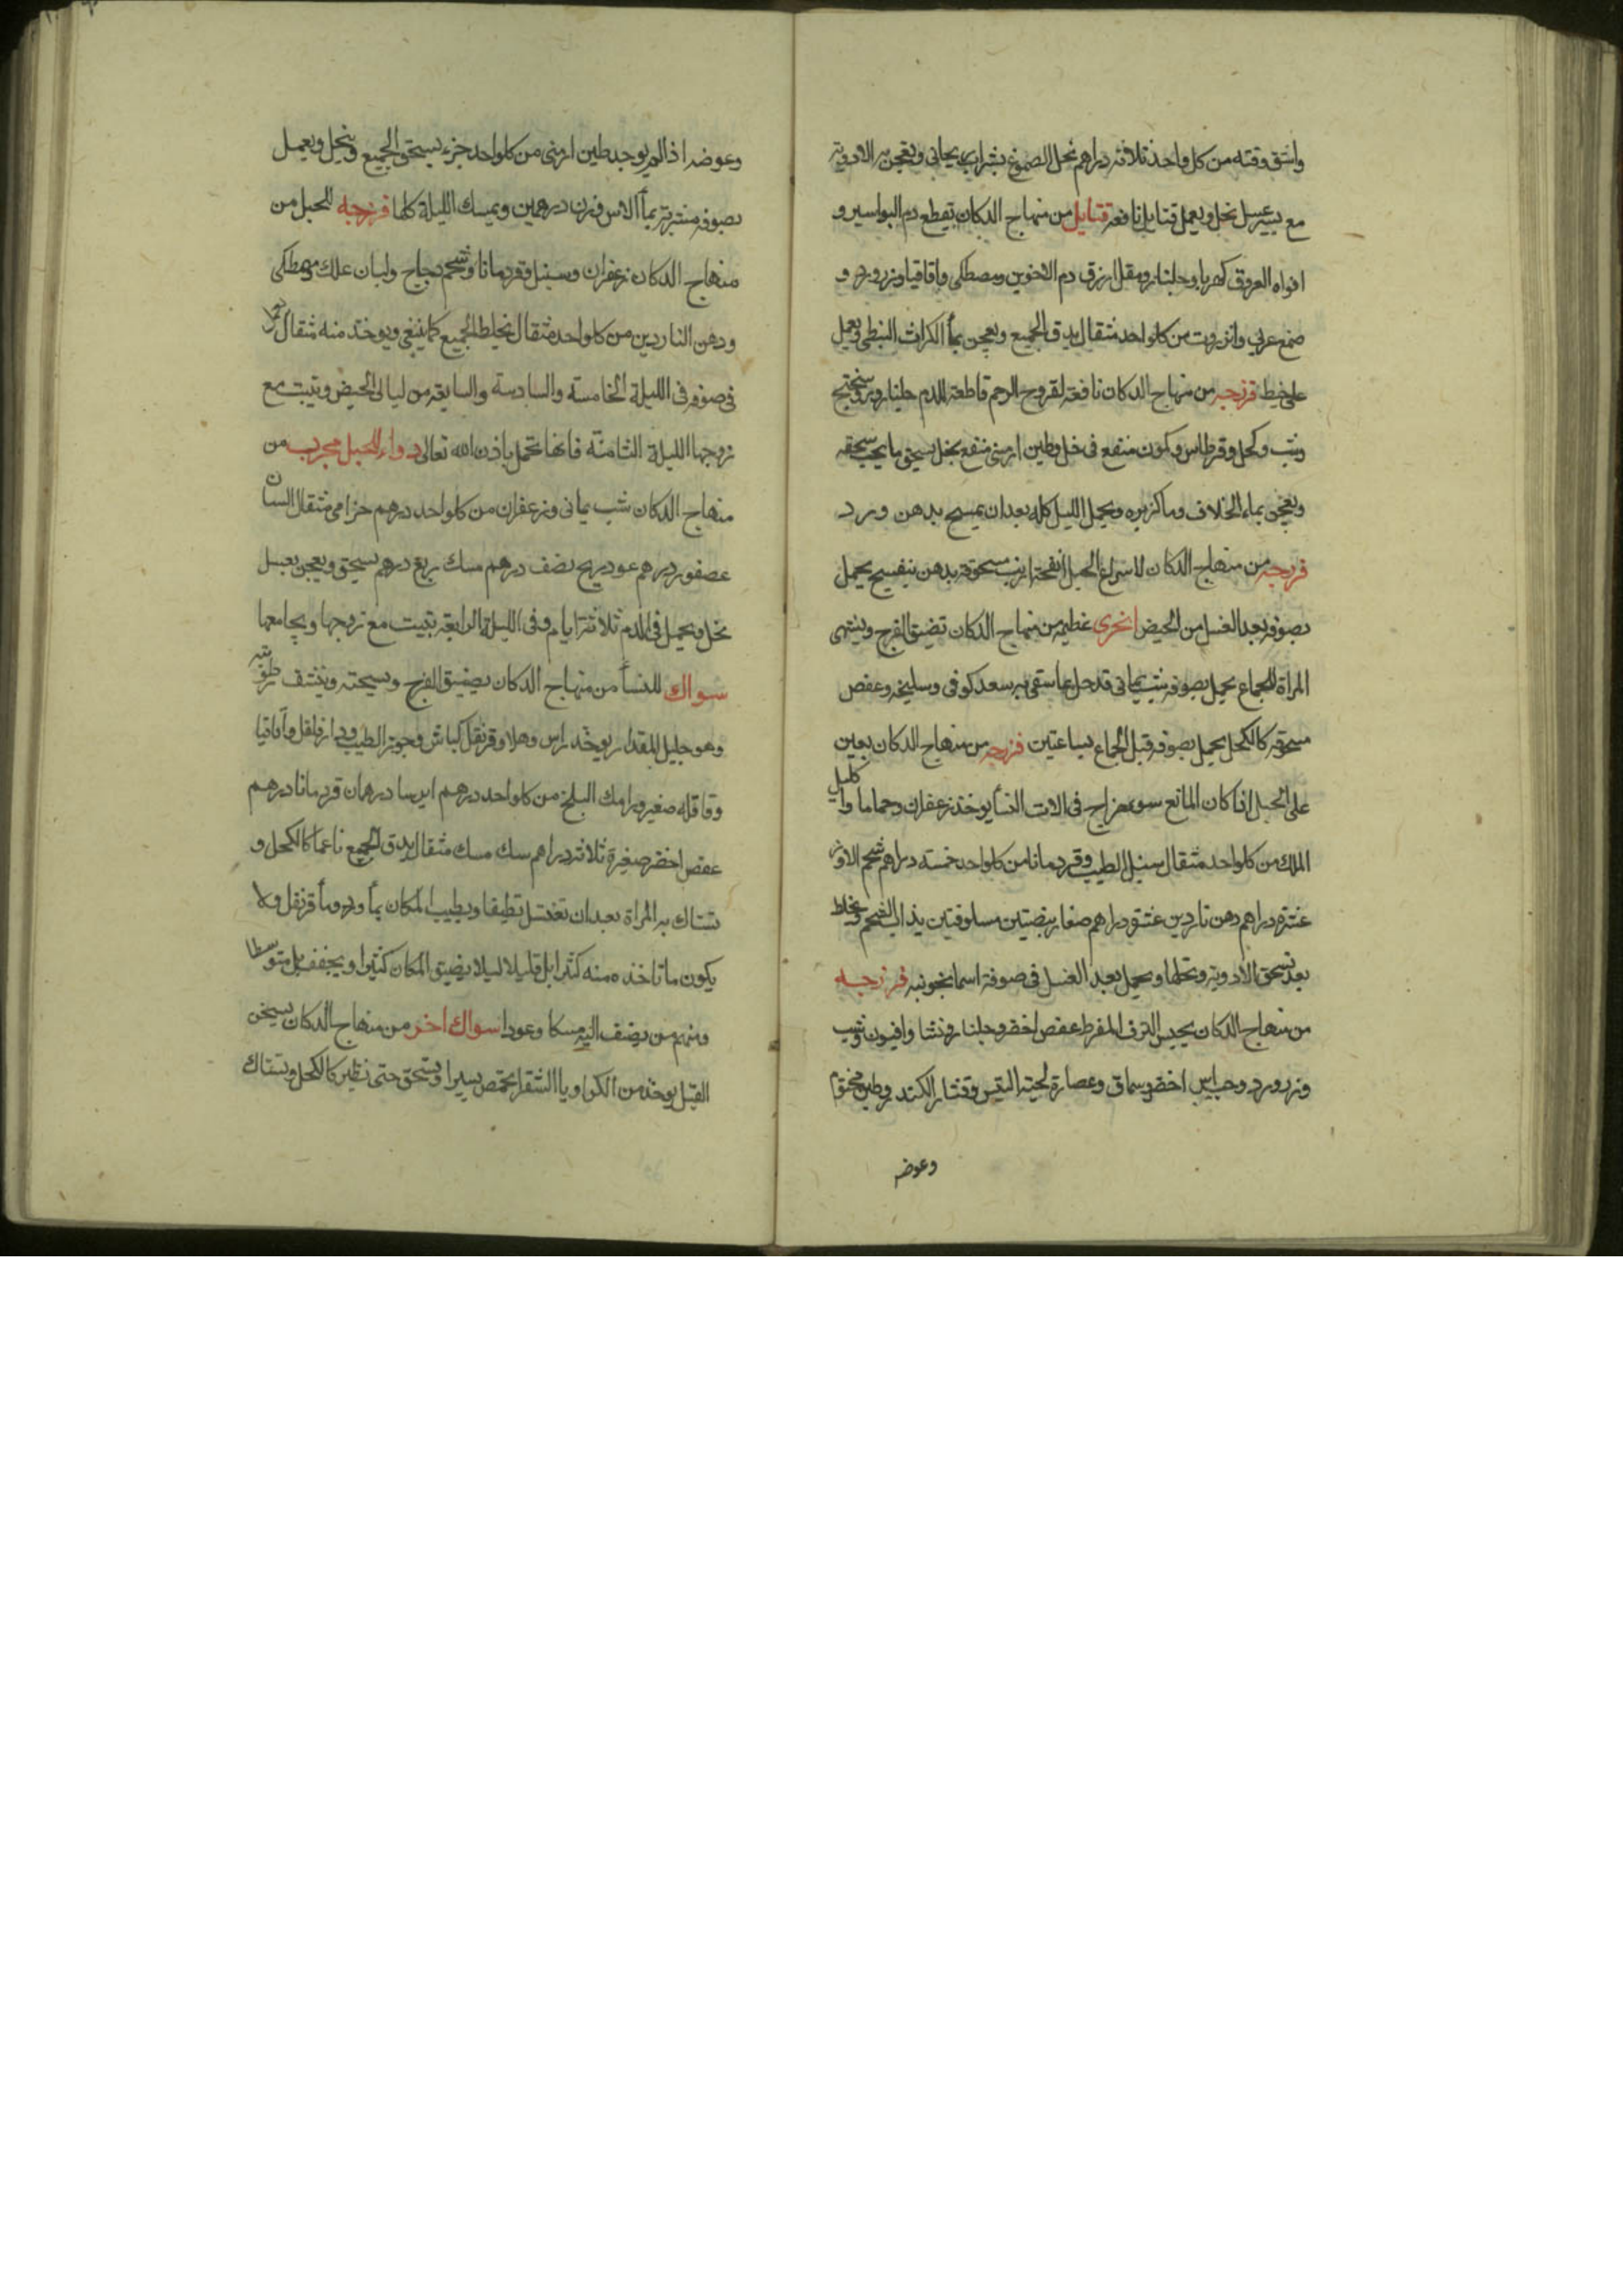 واشق وقنه من كل واحد ثلاثة دراهم تحل الصموغ بشراب ريحاني ويعجن به الادوية
مع يسير عسل نحل ويعمل فتايل نافعة فتايل من منهاج الدكان تقطع دم البواسير و
افواه العروق كهربا وجلنار ومقل ازرق دم الاخوين ومصطكى واقاقيا وزرورد و
صمغ عربي وانزروت من كل واحد مثقال يدق الجميع ويعجن بمأ الكراث النبطى ويعمل
على خيط فرزجه من منهاج الدكان نافعة لقروح الرحم قاطعة للدم جلنار
وشب وكحل وقرطاس وكمون منقع فى خل وطين ارمنى منقع بخل يسحق ما يجب سحقه
ويعجن بماء الخلاف وما كزبره ويحمل الليل كله بعد ان يمسح بدهن ورد
فرزجه من منهاج الدكان لاسراع الحبل انفحة ارنب مسحوقة بدهن بنفسج يحمل
بصوفه بعد الغسل من الحيض اخرى عظيمه من منهاج الدكان تضيق الفرج وينتهى
المراة للجماع يحمل بصوفه شب يمانى قد حل بما سقى به سعد كوفى وسليخه وعفص
مسحوقه كالكحل يحمل بصوفه قبل الجماع بساعتين فرزجه من منهاج الدكان يعين
على الحبل اذا كان المانع سوء مزاج فى الات النسأ يوخذ زعفران وحماما واكليل
الملك من كل واحد مثقال سنبل الطيب وقردمانا من كل واحد خمسة دراهم شحم الاوز
عشرة دراهم دهن ناردين عشرة دراهم صفار بيضتين مسلوقتين يذاب الشحم ويخلط
بعد تسحق الادوية ونخلها ويحمل بعد الغسل فى صوفة اسمانجونيه فرزجه
من منهاج الدكان يحبس النزف المفرط عفص اخضر وجلنار ونشا وافيون وشب
وزرورد وحب اس اخضر وسماق وعصارة لحية التيس وقشار الكندر وطين مختوم
وعوضه
وعوضه اذا لم يوجد طين ارمنى من كل واحد جزء يسحق الجميع وينخل ويعمل
بصوفه منشربة بمأ الاس وزن درهمين ويمسك الليلة كلها فرزجه للحبل من
منهاج الدكان زعفران وسنبل وقردمانا وشحم دجاج ولبان علك ومصطكى
ودهن الناردين من كل واحد مثقال يخلط الجميع كما ينبغى ويوخذ منه مثقال
فى صوفه فى الليلة الخامسة والسادسة والسابعه من ليالى الحيض وتبيت مع
زوجها الليلة الثامنة فانها تحمل باذن الله تعالى دواء للحبل مجرب من
منهاج الدكان شب يمانى وزعفران من كل واحد درهم خزامى مثقال السان
عصفور درهم عود ريح نصف درهم مسك ربع درهم يسحق ويعجن بعسل
نحل ويحمل فى الدم ثلاثة ايام وفى الليلة الرابعه تبيت مع زوجها ويجامعها
سواك للنسأ من منهاج الدكان يضيق الفرج ويسخنه وينشف رطوبته
وهو جليل المقدار يوخذ راس وهلا وقرنفل كباش وجوز الطيب ودارفلفل واقاقيا
وقاقله صغير ورامك البلح من كل واحد درهم ايرسا درهمان قردمانا درهم
عفص اخضر صغيرة ثلاثة دراهم سك مسك مثقال يدق الجميع ناعما كالكحل و
تستاك به المراة بعد ان تغتسل تنظيفا ويطيب المكان بمأ ورد ومأ قرنفل ولا
يكون ما تاخذه منه كثيرا بل قليلا ليلا يضيق المكان كثيرا ويجفف بل متوسطا
ومنهم من يضف اليه مسكا وعودا سواك اخر من منهاج الدكان يسخن
القبل يوخذ من الكراويا الشقرا يحمص يسيرا ويسحق حتى تصير كالكحل وتستاك